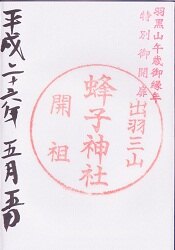 羽黒山午歳御縁年
特別御開扉
出羽三山
蜂子神社
開祖
平成二十六年 五月 五日